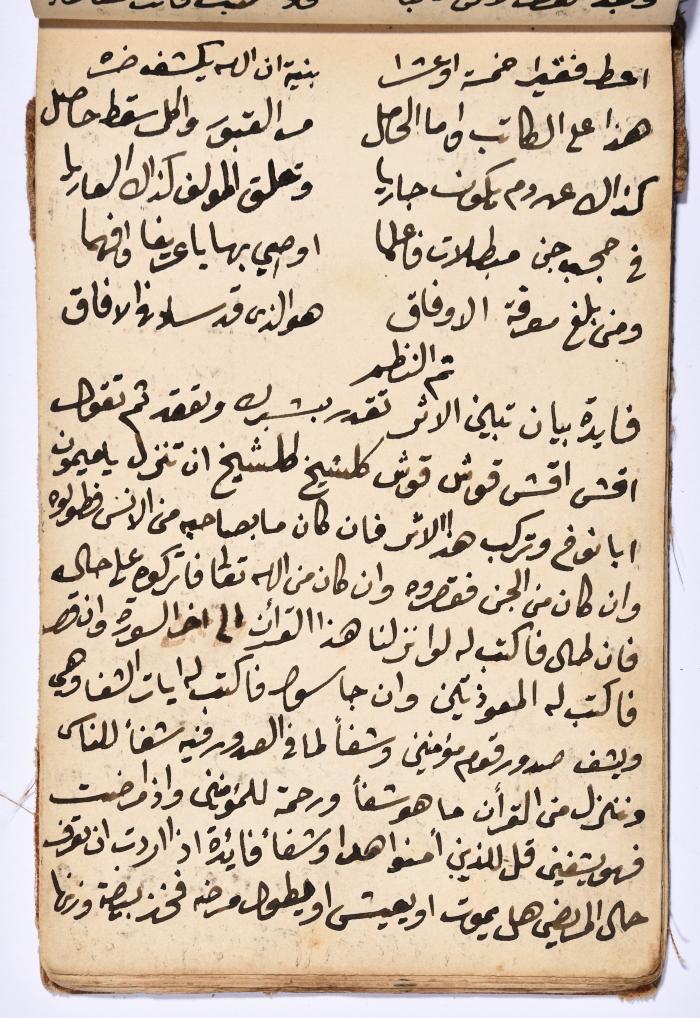 اعط فقيرا خمسة او عشرا بنية ان الله يكشف ضره
هذا على الكاتب واما الحاصل من القبور واكل سقط حاصل
كذاك عن دم يكون جاريا وتعلق المولف كذاك العاريا
في حجب جن مبطلات فاعلما اوصي بها يا عريفا وافهما
ومن بلغ معرفة الاوفاق هو الذي قد ساد في الافاق
تم النظم
فايدة بيان تبين الاثر تقدر بشبرك وتعقد ثم تقول
اقش اقش قوش قوش كلشيخ كلشيخ ان تنزل يا ميمون
ابا نوخ وتركب هذا الاثر فان كان ما بصاحبه من الانس فطولوه
وان كان من الجن فقصروه وان كان من الله تعالى فاتركوه على حاله
فان طال فاكتب له لو انزلنا هذا القرأن الى اخر السورة وان قصر
فاكتب له المعوذتين وان جا سوا فاكتب له ايات الشفا وهي
ويشف صدور قوم مؤمنين وشفأ لما في الصدور فيه شفأ للناس
وننزل من القرأن ما هو شفأ ورحمة للمؤمنين واذا مرضت
فهو يشفين قل للذين أمنوا هدا وشفأ فائدة اذا اردت ان تعرف
حال المريض هل يموت او يعيش او يطول مرضه فخذ بيضة وزنها